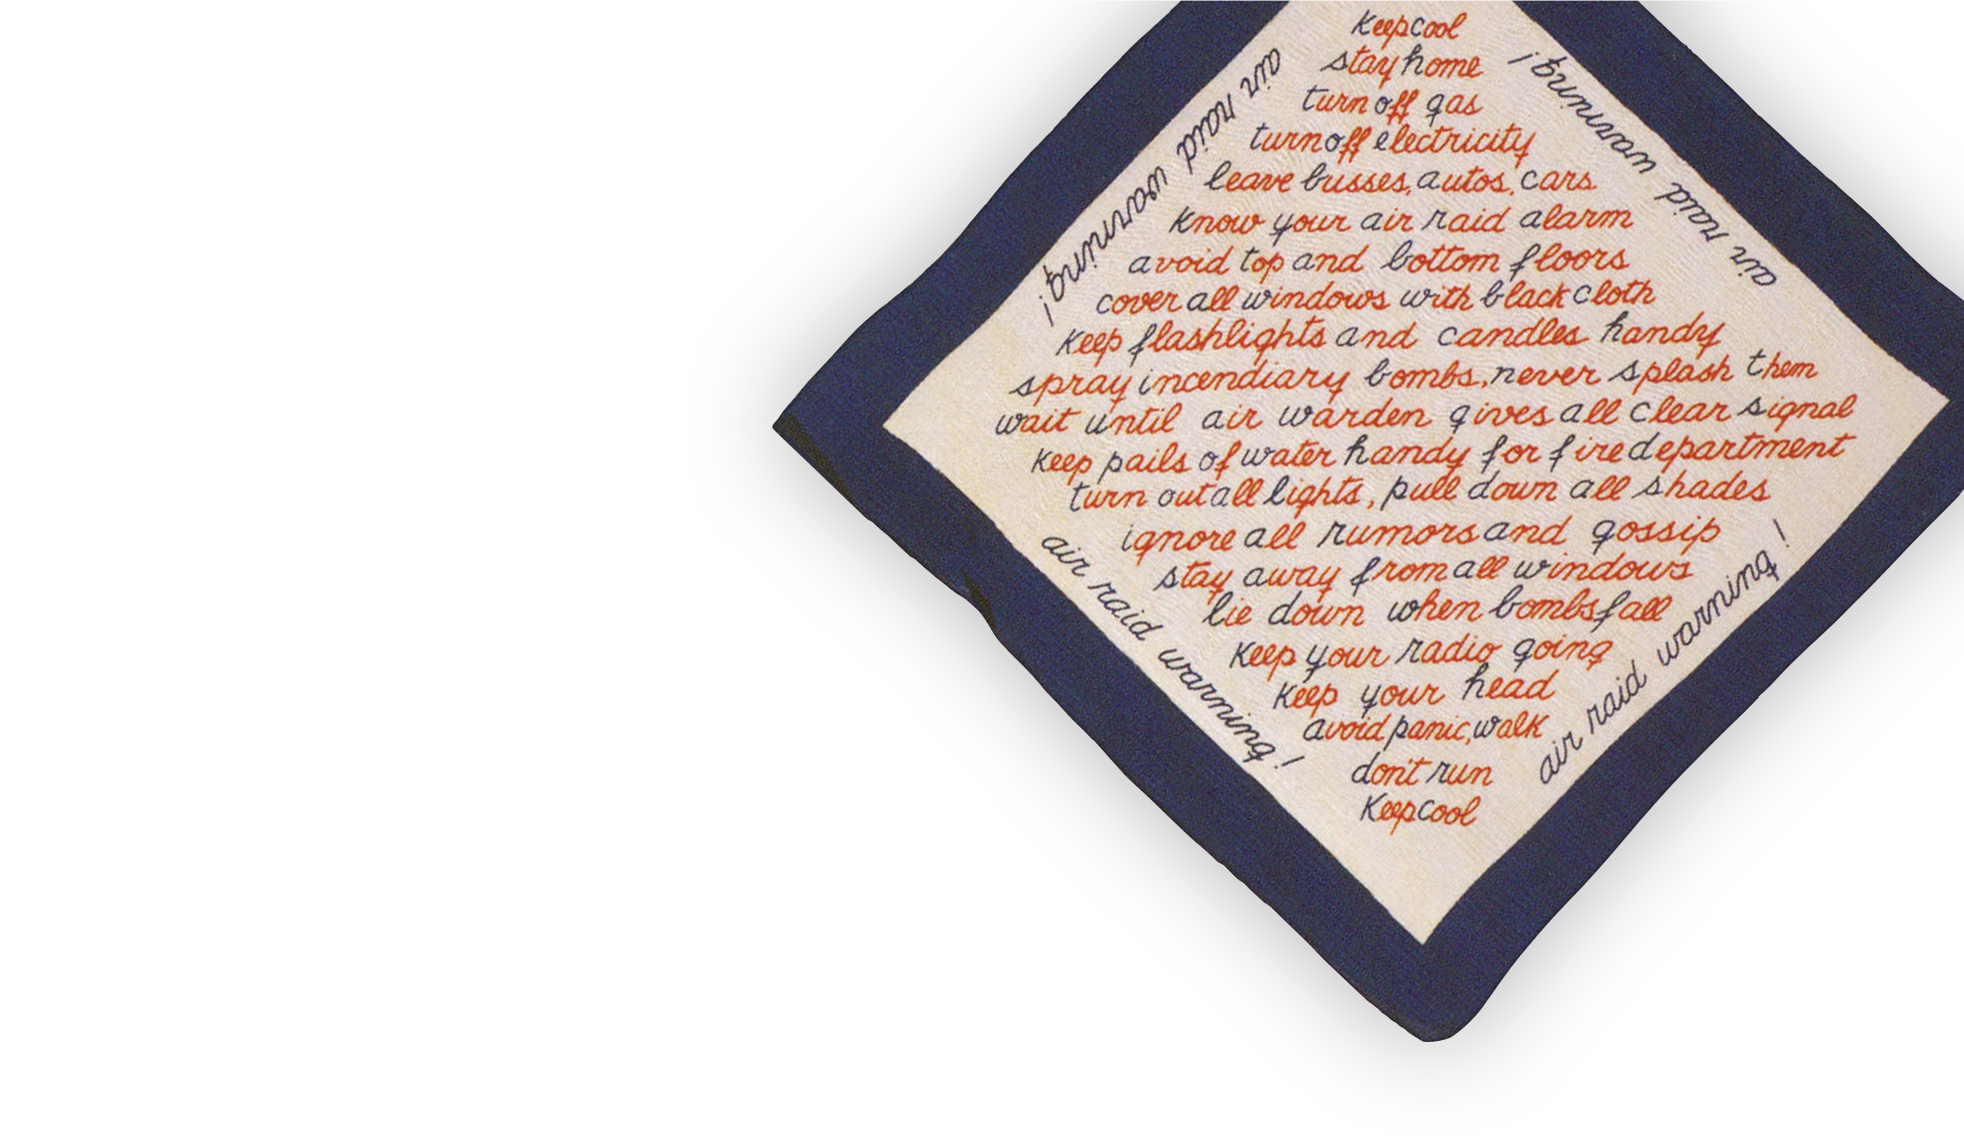 keep cool
stay home
turn off gas
turn off electricity
leave busses, autos, cars
know your air raid alarm
avoid top and bottom floors
cover all windows with black cloth
keep flashlights and candles handy
spray incendiary bombs, never splash them
wait until air warden gives all clear signal
keep pails of water handy for fire department
turn out all lights, pull down all shades
ignore all rumors and gossip
stay away from all windows
lie down when bombs fall
keep your radio going
keep your head
avoid panic, walk
don't run
keep cool
air raid warning!
air raid warning!
air raid warning!
air raid warning!